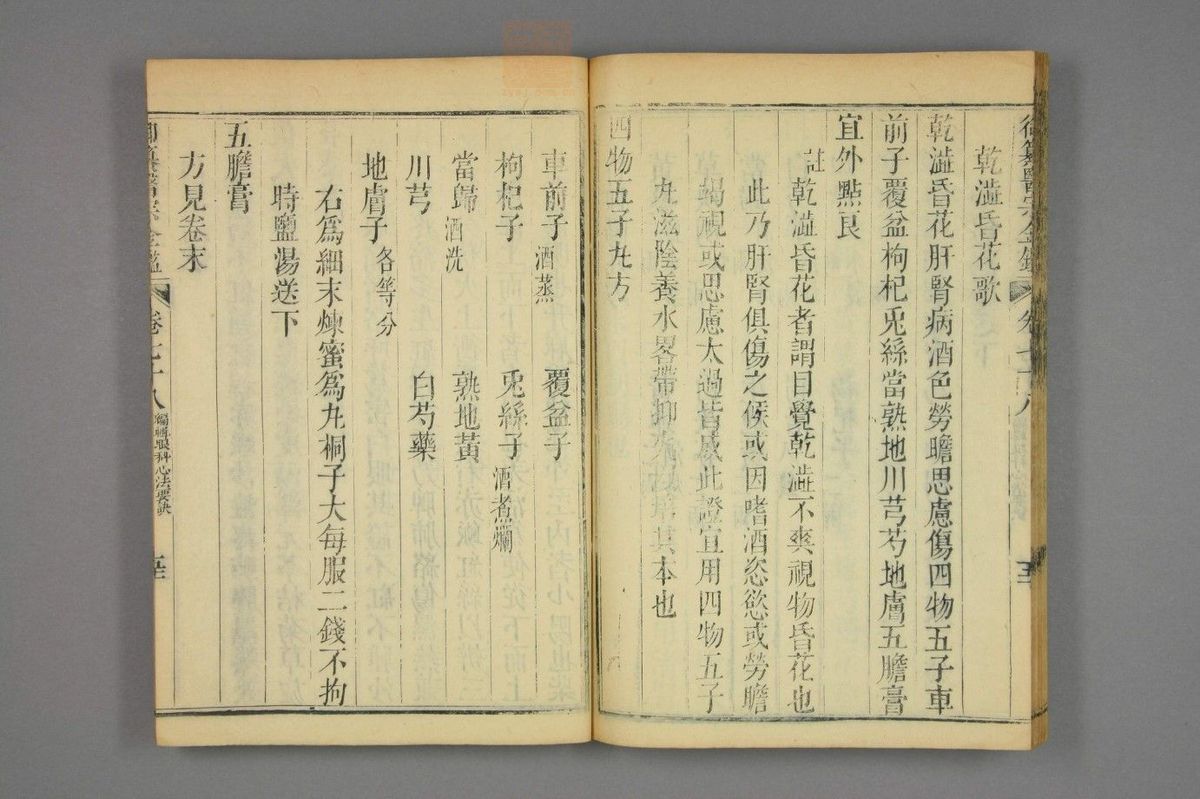 乾澁昏花歌
乾澁昏花肝腎病酒色勞瞻思慮傷四物五子車
前子覆盆枸杞兎絲當熟地川芎芍地膚五膽膏
宜外㸃良
註乾澁昏花者謂目覺乾澁不爽視物昏花也
此乃肝腎俱傷之候或因嗜酒恣慾或勞瞻
竭視或思慮太過皆成此證宜用四物五子
丸滋陰養水畧帶抑火以培其本也
四物五子丸方
車前子酒蒸 覆盆子
枸杞子 兎絲子酒煮爛
當歸酒洗 熟地黃
川芎 白芍藥
地膚子各等分
右爲細末煉蜜爲丸桐子大每服二錢不拘
時鹽湯送下
五膽膏
方見卷末
御纂醫宗金鑑 卷七十八 編輯眼科心法要訣